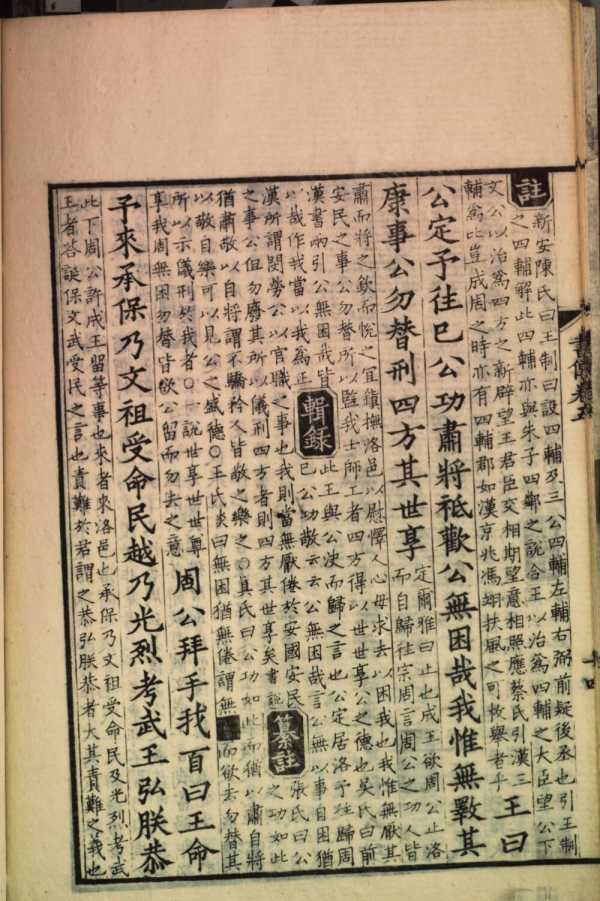 書傳卷五
十四
註
新安陳氏曰王制曰設四輔及三公四輔左輔右弼前疑後丞也引王制
之四輔解此四輔亦與朱子四鄰之說合王以治為四輔之大臣望公下
文公以治為四方之新辟望王君臣交相期望意相照應蔡氏引漢三
輔為比豈成周之時亦有四輔郡如漢京兆馮翊扶風之可枚舉者乎
王曰
公定予往已公功肅將祗歡公無困哉我惟無斁其
康事公勿替刑四方其世享
定爾雅曰止也成王欲周公止洛
而自歸往宗周言周公之功人皆
肅而將之欽而悅之宜鎮撫洛邑以慰懌人心毋求去以困我也我惟無厭其
安民之事公勿替所以監我士師工者四方得以世世享公之德也吳氏曰前
漢書兩引公無困哉皆
以哉作我當以我為正
輯錄
此王與公決而歸之言也公定居洛予往歸周
已公功敬云云公無困哉言公無以事自困猶
漢所謂閔勞公以官職之事也我則當無厭倦於安國安民
之事公但勿廢其所以儀刑四方者則四方其世享矣書說
纂註
張氏曰公
之功如此
猶肅敬以自將謂不驕矜人皆敬之樂之○真氏曰公功如此而猶以肅自將
以敬自樂可以見公之盛德○王氏炎曰無困猶無倦謂無而欲去勿替其
所以示儀刑於我者○一說世享世世
享我周無困勿替皆欲公留而勿去之意
周公拜手稽首曰王命
予來承保乃文祖受命民越乃光烈考武王弘朕恭
此下周公許成王留等事也來者來洛邑也承保乃文祖受命民及光烈考武
王者答誕保文武受民之言也責難於君謂之恭弘朕恭者大其責難之義也